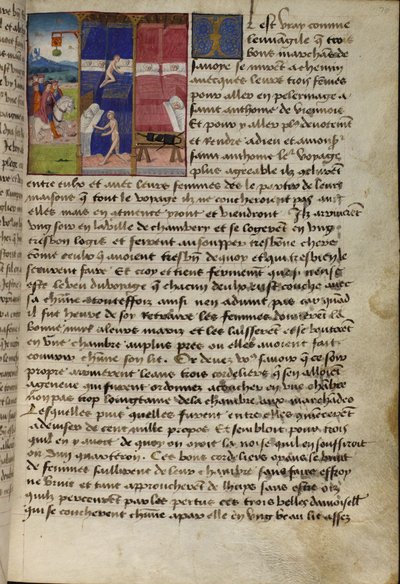 Il est vray comme
leuuangile que trois
bons marchans de
sauoye se mirent a chemin
auecques leurs trois femmes
pour aller en pelerinage a
saint anthoine de viennois
Et pour y aller plus deuotement
et rendre a dieu et a monsr
saint anthoine le voyage
plus agreable ilz
entre eulx et auec leurs femmes des le partir de leurs
maisons que tout le voyage ilz ne coucheront pas auec
elles mais en continence yront et viendront Ilz arriuerent
vng soir en la ville de chambery et se logerent en vng
tresbon logis et firent au soupper tresbonne chere
comme ceulx qui auoient tresbien de quoy et qui tresbien le
sceurent faire Et croy et tiens fermement que si neust
este le veu du voyage que chacun deulx eust couche auec
sa chacune toutesfoiz ainsi nen aduint pas car quant
il fut heure de soy retraire les femmes donnerent la
bonne nuyt a leurs mariz et les laisserent et se bouterent
en vne chambre au plus pres ou elles auoient fait
couurir chacune son lit Or deuez vous sauoir que ce soir
propre arriuerent leans trois cordeliers qui sen alloient
a geneue qui furent ordonnez a coucher en vne chambre
non pas trop loingtaine de la chambre aux marchandes
Lesquelles puis quelles furent entre elles commencerent
a deuiser de cent mille propos Et sembloit pour trois
quil en y auoit de quoy on oioit la noise quil en souffiroit
ouir dun quarteron Ces bons cordeliers oyans le bruit
de femmes saillirent de leur chambre sans faire effroy
ne bruit et tant approucherent de lhuys sans estre oiz
quilz perceurent par les pertuis ces trois belles damoiselles
qui se coucherent chacune a par elle en vng beau lit assez